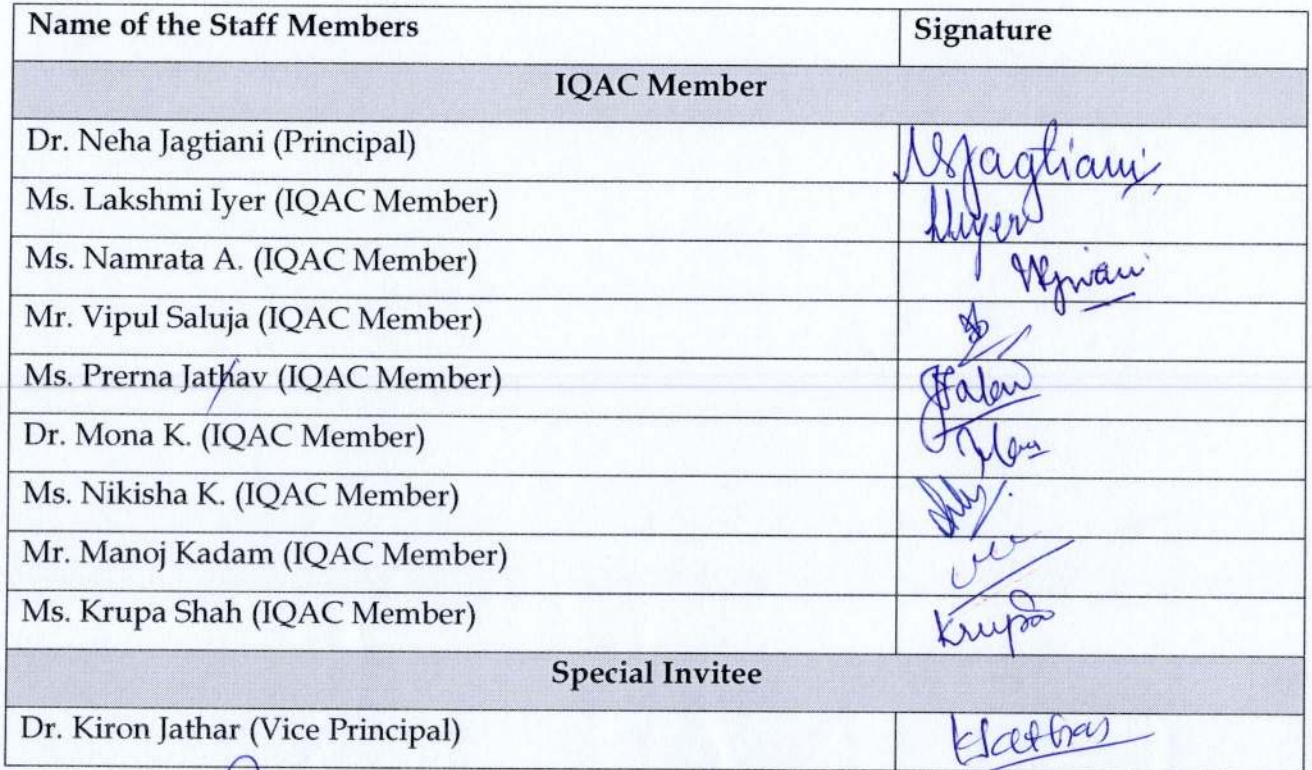 Name of the Staff Members Signature
IQAC Member
Dr. Neha Jagtiani (Principal) NSJagtiani
Ms. Lakshmi Iyer (IQAC Member) LIyer
Ms. Namrata A. (IQAC Member)
Mr. Vipul Saluja (IQAC Member)
Ms. Prerna Jathav (IQAC Member)
Dr. Mona K. (IQAC Member)
Ms. Nikisha K. (IQAC Member)
Mr. Manoj Kadam (IQAC Member)
Ms. Krupa Shah (IQAC Member) Krupa
Special Invitee
Dr. Kiron Jathar (Vice Principal)